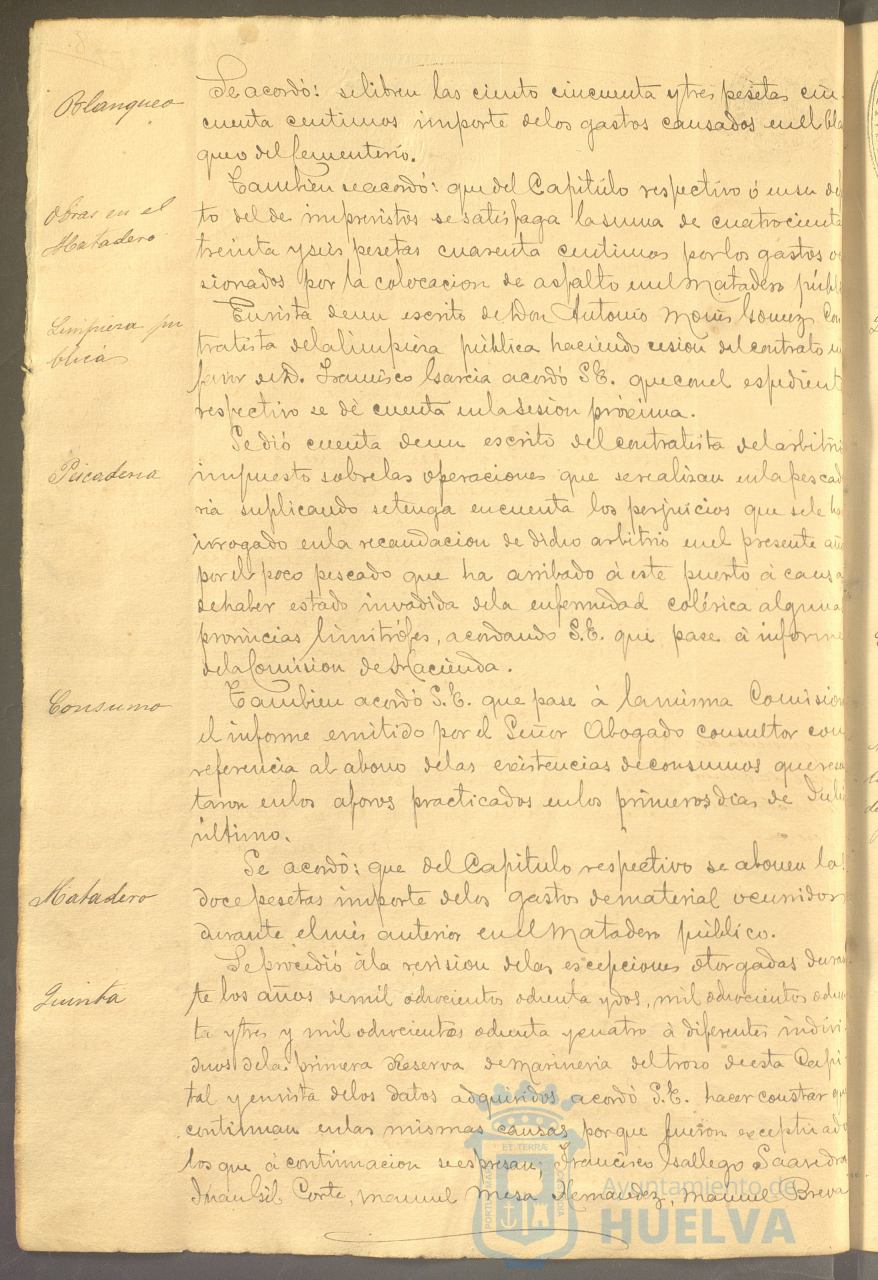 Blanqueo
Se acordó: se libren las ciento cincuenta y tres pesetas cin-
cuenta centimos importe de los gastos causados en el bla
queo del Cementerio.
Obras en el
Matadero
Tambien se acordó: que del Capitúlo respectivo ó en su defec
to del de imprevistos se satisfaga la suma de cuatrocienta
treinta y seis pesetas cuarenta centimos por los gastos oca
sionados por la colocacion de asfalto en el Matadero públi
Limpieza pu
blica
En vista de un escrito de Don Antonio Gomez Con
tratista de la limpieza pública haciendo cesion del contrato en
favor de D. Francisco Garcia acordó S.E. que con el espediente
respectivo se dé cuenta en la sesion próxima.
Pescaderia
Se dió cuenta de un escrito del contratista del arbitrio
impuesto sobre las operaciones que se realizan en la pescad
ria suplicando se tenga en cuenta los perjuicios que se le ha
irrogado en la recaudacion de dicho arbitrio en el presente año
por el poco pescado que ha arribado á este puerto á causa
de haber estado invadida de la enfermedad colérica alguna
provincias limitrófes, acordando S.E. que pase á informe
de la Comision de Hacienda.
Consumo
Tambien acordó S.E. que pase á la misma Comision
el informe emitido por el Señor Abogado consultor con
referencia al abono de las existencias de consumos que resul
taron en los aforos practicados en los primeros dias de Juli
último.
Matadero
Se acordó: que del Capitulo respectivo se abonen las
doce pesetas importe de los gastos de material ocurridos
durante el mes anterior en el Matadero público.
Quinta
Se procedió á la revision de las escepciones otorgadas duran
te los años de mil ochocientos ochenta y dos, mil ochocientos ochen
ta y tres y mil ochocientos ochenta y cuatro á diferentes indivi-
duos de la primera Reserva de Marineria del trozo de esta Capi
tal y en vista de los datos adquiridos acordó S.E. hacer constar que
continuan en las mismas causas porque fueron exceptuado
los que á continuacion se espresan; Francisco Gallego Saavedra
Juan Gil Corte, Manuel Mesa Hernandez, Manuel Breva
ET TERRÆ
Ayuntamiento de
HUELVA